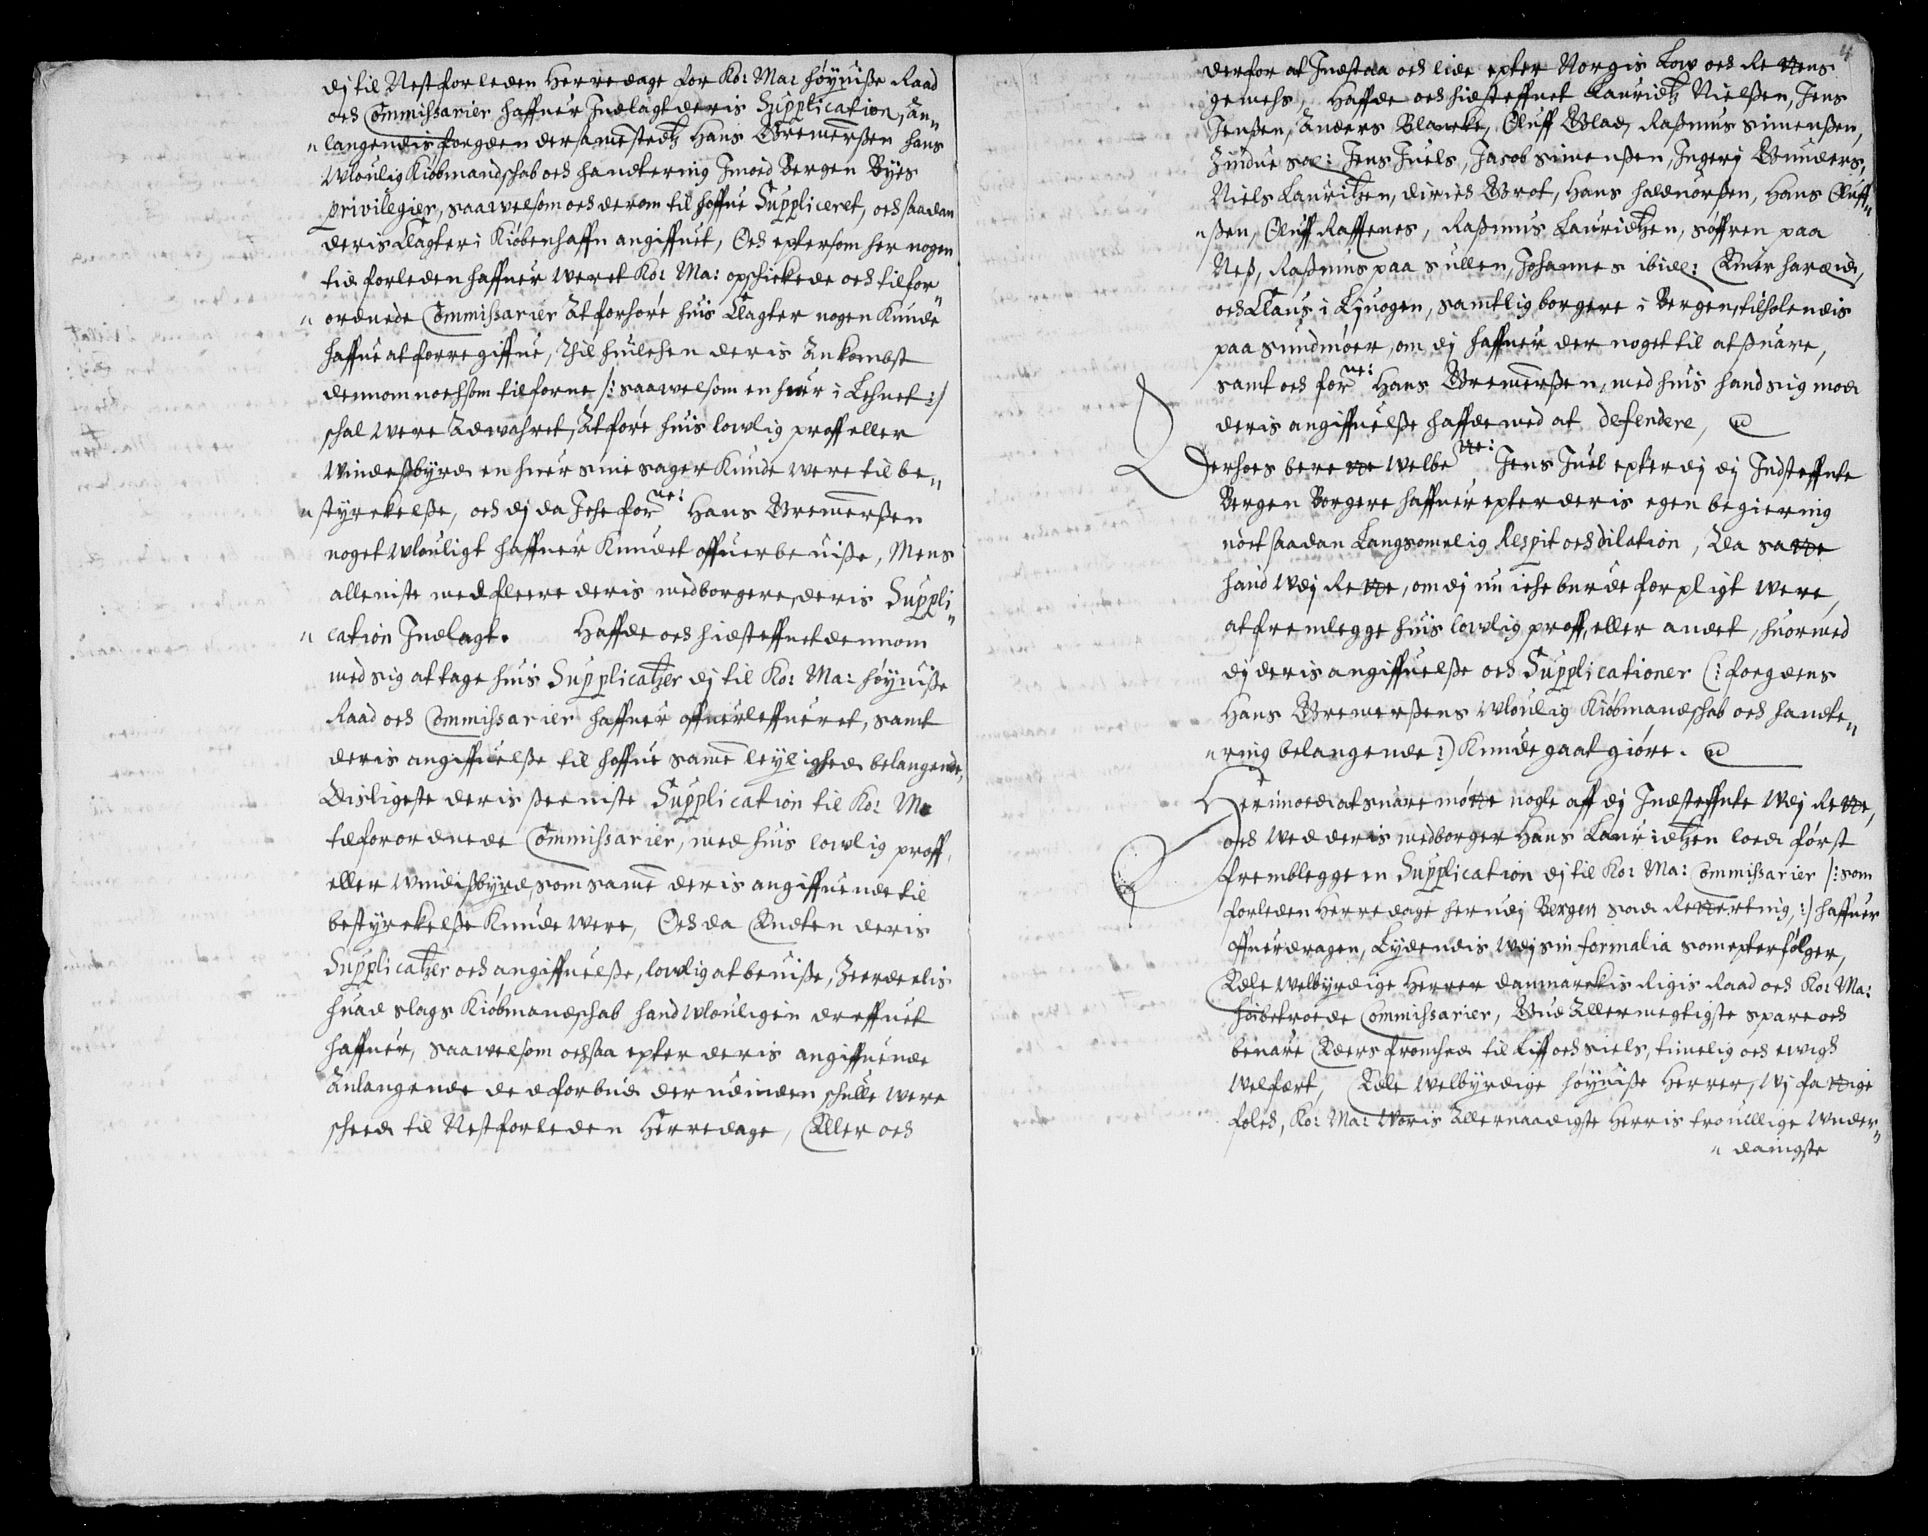 dj til Nest forleden Herredage for Ko: Ma: høyuiße Raad
och Commissarier haffuer Indlagt deris Supplication, An„
„langendis forgden dersamestedtz Hans Bremerßen hans
Wloulig Kiøbmandschab och handtering Imoed Bergen Byes
privilegier, saawelsom och derom til hoffue Suppliceret, och saadan
deris Klagter i Kiøbenhaffn angiffuet, Och epter som her nogen
tid forleden haffuer weret Ko: Ma: opschickede och tilfor„
„ordnede Commissarier At forhøre huis Klagter nogen Kunde
haffue at forregiffue, Thil huilchen deris Ankombst
dennom nochsom tilforne /: saawelsom en huer i Lehnet :/
schal were Adwahret, At føre huis lowlig proff eller
Windeßbyrd en huer sine sager Kunde were til be„
„styrckelße, och dj da Iche forne: Hans Bremerßen
noget Wlouligt haffuer Kundet offuerbeuiße, Mens
alleniste med fleere deris medborgere, deris Suppli„
„cation Indlagt. Haffde och hidsteffnet dennom
med sig at tage huis Supplicatzer dj til Ko: Ma: høyuiße
Raad och Commissarier haffuer offuerleffueret, samt
deris angiffuelße til hoffue same leylighed belangende,
Disligeste deris seeniste Supplication til Ko: Ma
tilforordnede Commissarier, med huis lowlig proff,
eller windißbyrd, som same deris angiffuende til
bestyrckelße Kunde were, Och da Endten deris
Supplicatzer och angiffuelße, lowlig at beuiße, Zeerdeelis
huad slags Kiøbmandschab hand Wlouligen dreffuet
haffuer, saawelsom och saa epter deris angiffuende
Anlangende ded forbud der udinden schulle were
scheed til Nestforleden Herredage, Eller och
4
derfor at Indstaa och lide epter Norgis Low och Rettens
gemehs, Haffde och hidsteffnet Lauridtz Nielßen, Jens
Jenßen, Anders Blancke, Oluff Blad, Raßmus simenßen,
Zindue sal: Jens Juels, Jacob simenßen, Ingerj Bunders,
Niels Lauritzen, dirich Brot, Hans haldnorßen, Hans Oluff„
„ßen, Oluff Raffenes, Raßmus Lauridtzen, søffren paa
Neß, Raßmus paa sullen, Johannes ibid: Einer haraid,
och Claus i Liuogen, samtlig borgere i Bergen, tilholendis
paa sundmøer, om dj haffuer der noget til at suare,
samt och forne: Hans Bremerßen, med huis hand sig mod
deris angiffuelße haffde med at defendere,
Derhoes berette Welbe: Jens Juel epter dj dj Indsteffnte
Bergen Borgere haffuer epter deris egen begiering
nøet saadan Langsommelig Respit och dilation, Da satte
hand Wdj Rette, om dj nu iche burde forpligt were,
at fremlegge huis lowlig proff, eller andet, huormed
dj deris angiffuelße och Supplicationer (: forgdens
Hans Bremerßens Wloulig Kiøbmandschab och handte„
„ring belangende :) Kunde gaat giøre.
Herimoed at suare møtte nogle aff dj Indsteffnte Wdj Rette,
och wed deris medborger Hans Lauridtzen loed først
fremblegge en Supplication dj til Ko: Ma: Commissarier /: som
forleden Herredage her udj Bergen sad Retterting, :/ haffuer
offuerdragen, Lydendis Wdj sin formalia som epterfølger,
Edle welbyrdige Herrer danmarckis Rigis Raad och Ko: Ma:
høibetroede Commissarier, Gud Allermegtigste spare och
beuare Eders fromhed til Liff och siels, timelig och ewigh
Welfært, Edle Welbyrdige høyuiße Herrer, Wj fattige
folch, Ko: Ma: Woris Allernaadigste Herris trouillige Wnder„
„danigste